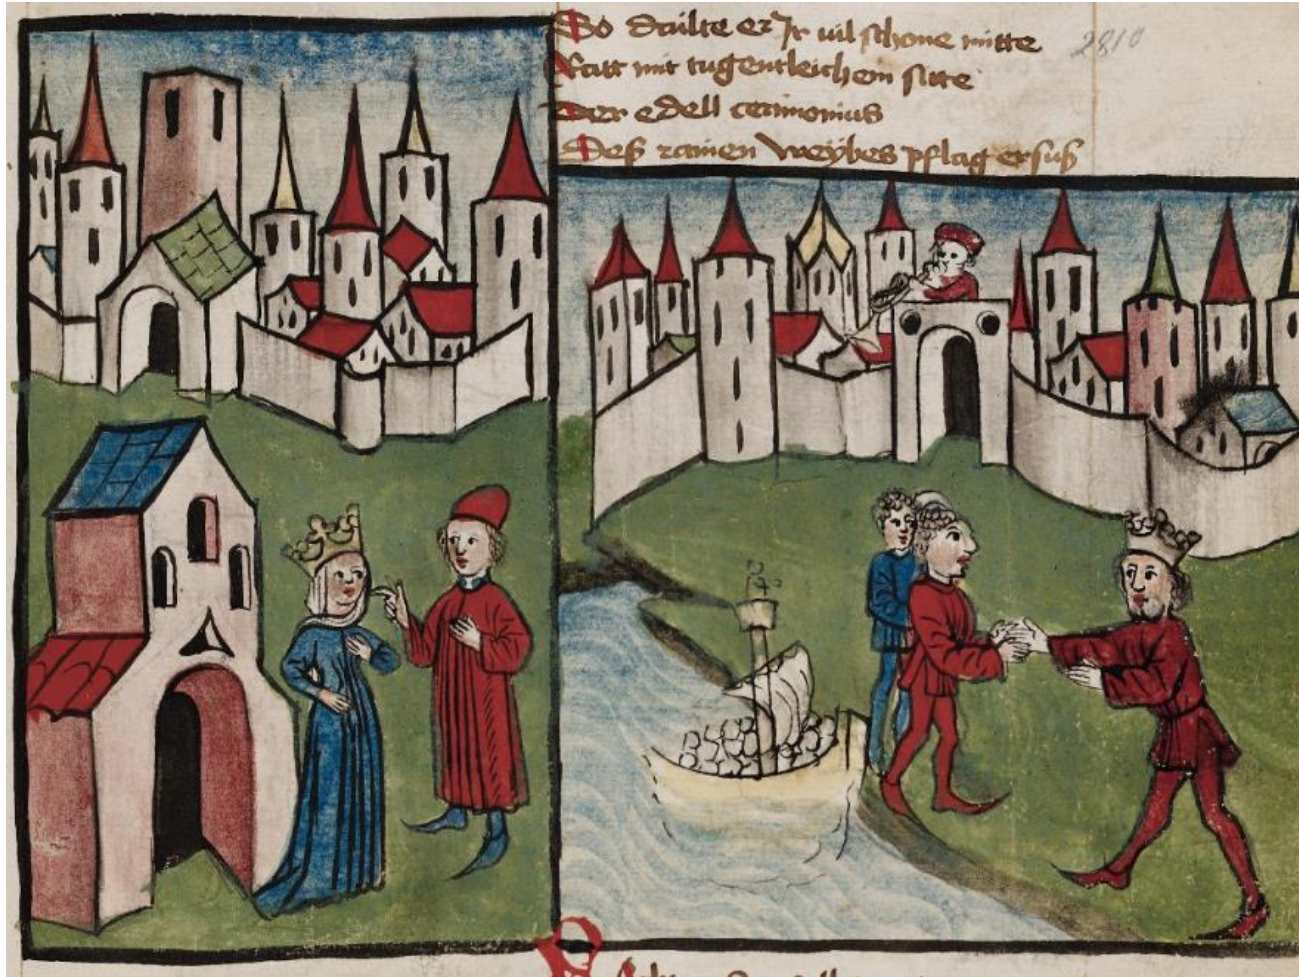 Do dailte er Ir vil schone mitte
2810
Ratt mit tugentleichem sitte
Der edell cerimonius
Deß rainen weybes pflag er suß